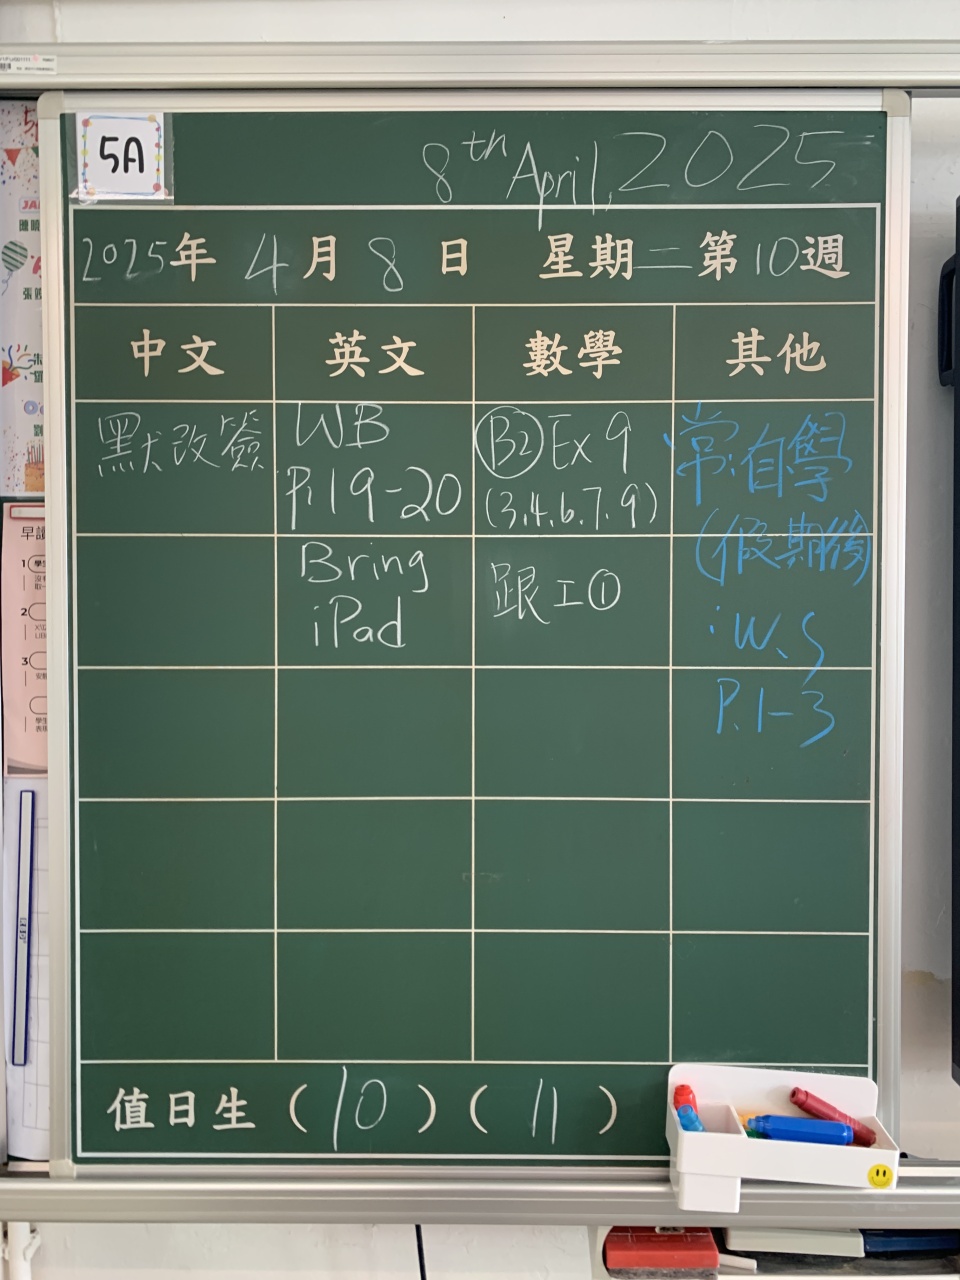 5A
8th April, 2025
2025年 4月 8日 星期二 第10週
中文 英文 數學 其他
默改簽
WB
P.19-20
B2 Ex 9
(3.4.6.7.9)
常:自學
(假期後)
Bring
iPad
跟工①
W.S
P.1-3
值日生 (10) (11)
早讀
1
2
3